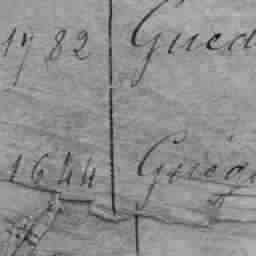 1782 Gued
1644 Guéga